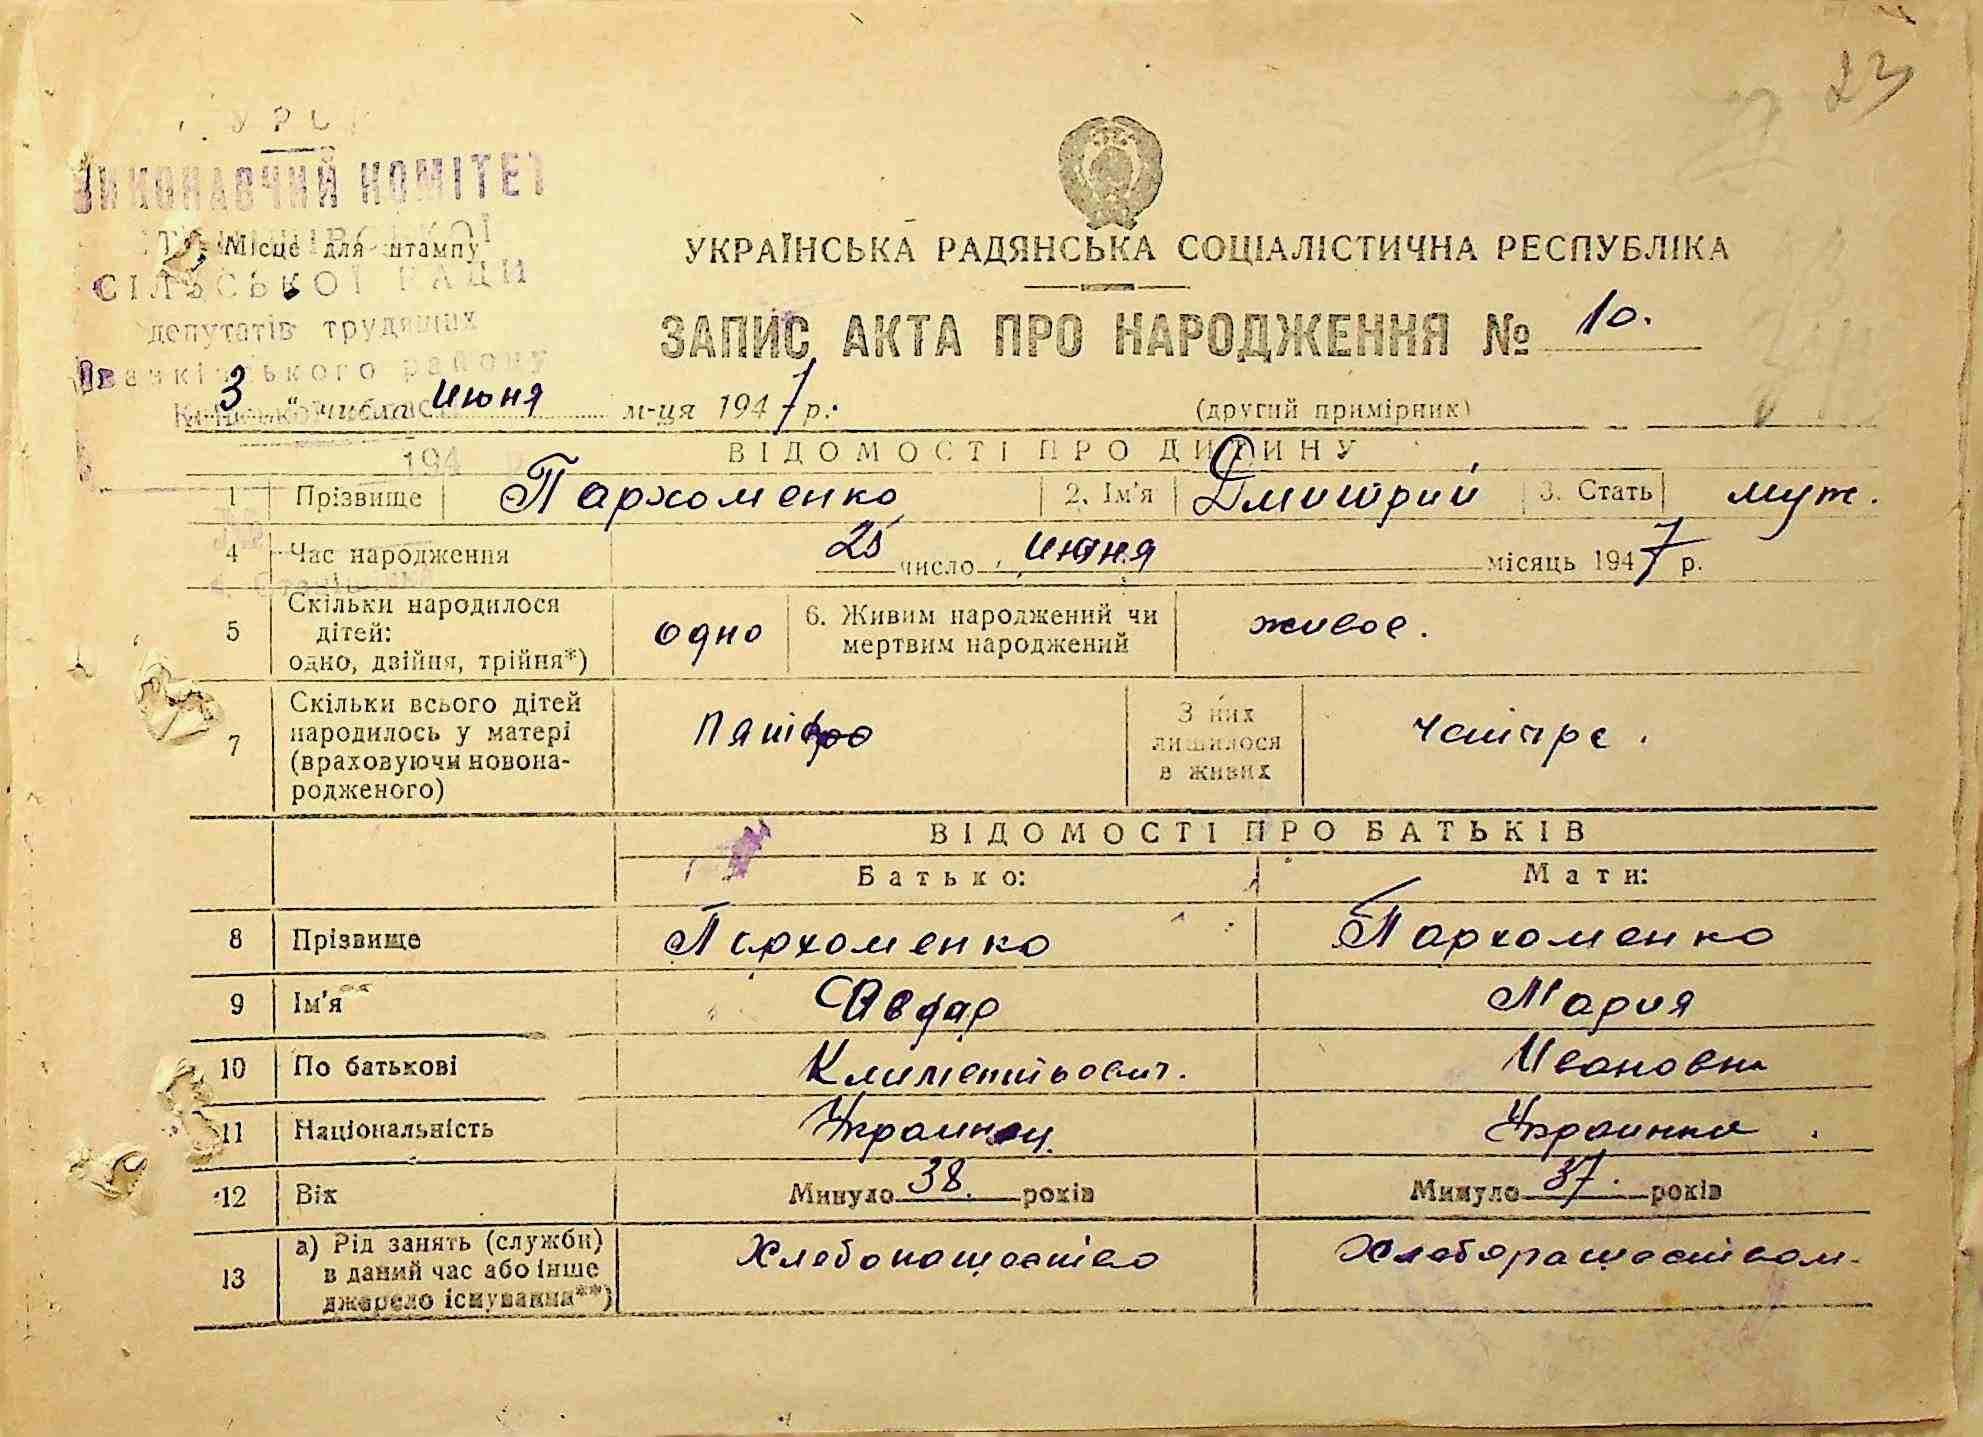 23
УРСР
ВИКОНАВЧИЙ КОМІТЕТ
Місце для штампу
СІЛЬСЬКОЇ РАДИ
депутатів трудящих
Іванківського району
УКРАЇНСЬКА РАДЯНСЬКА СОЦІАЛІСТИЧНА РЕСПУБЛІКА
ЗАПИС АКТА ПРО НАРОДЖЕННЯ № 10.
3 " числа июня м-ця 1947 р.
(другий примірник)
194 р.
ВІДОМОСТІ ПРО ДИТИНУ
1 Прізвище Пархоменко 2. Ім'я Дмитрий 3. Стать муж.
4 Час народження 25 число июня місяць 1947 р.
5 Скільки народилося дітей: одно, двійня, трійня*) одно 6. Живим народжений чи мертвим народжений живое.
7 Скільки всього дітей народилось у матері (враховуючи новонародженого) З них лишилося в живих
ВІДОМОСТІ ПРО БАТЬКІВ
Батько: Мати:
8 Прізвище Пархоменко Пархоменко
9 Ім'я Мария
10 По батькові Климентьевич. Ивановна
11 Національність Украинец. Украинка
12 Вік Минуло 38. років Минуло 37. років
13 а) Рід занять (служби) в даний час або інше джерело існування**) Хлебопашество